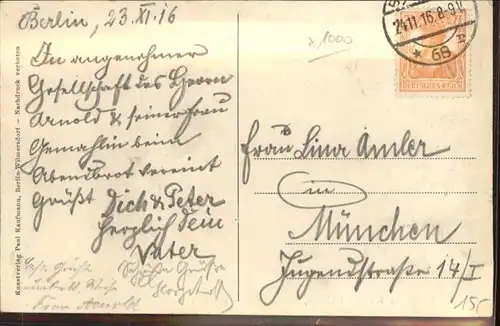 Berlin, 23.XI.16
In angenehmer
Gesellschaft des Herrn
Arnold & seiner Frau
Gemahlin beim
Abendbrot vereint
Grüßt Dich & Peter
herzlich dein
Vater
Frau Arnold
Kunstverlag Paul Kaufmann, Berlin-Wilmersdorf - Nachdruck verboten
x 1000
24.11.16. 8-9 V.
* 68
DEUTSCHES REICH
Frau Lina Amler
in
München
Jugendstraße 14/I
15,-